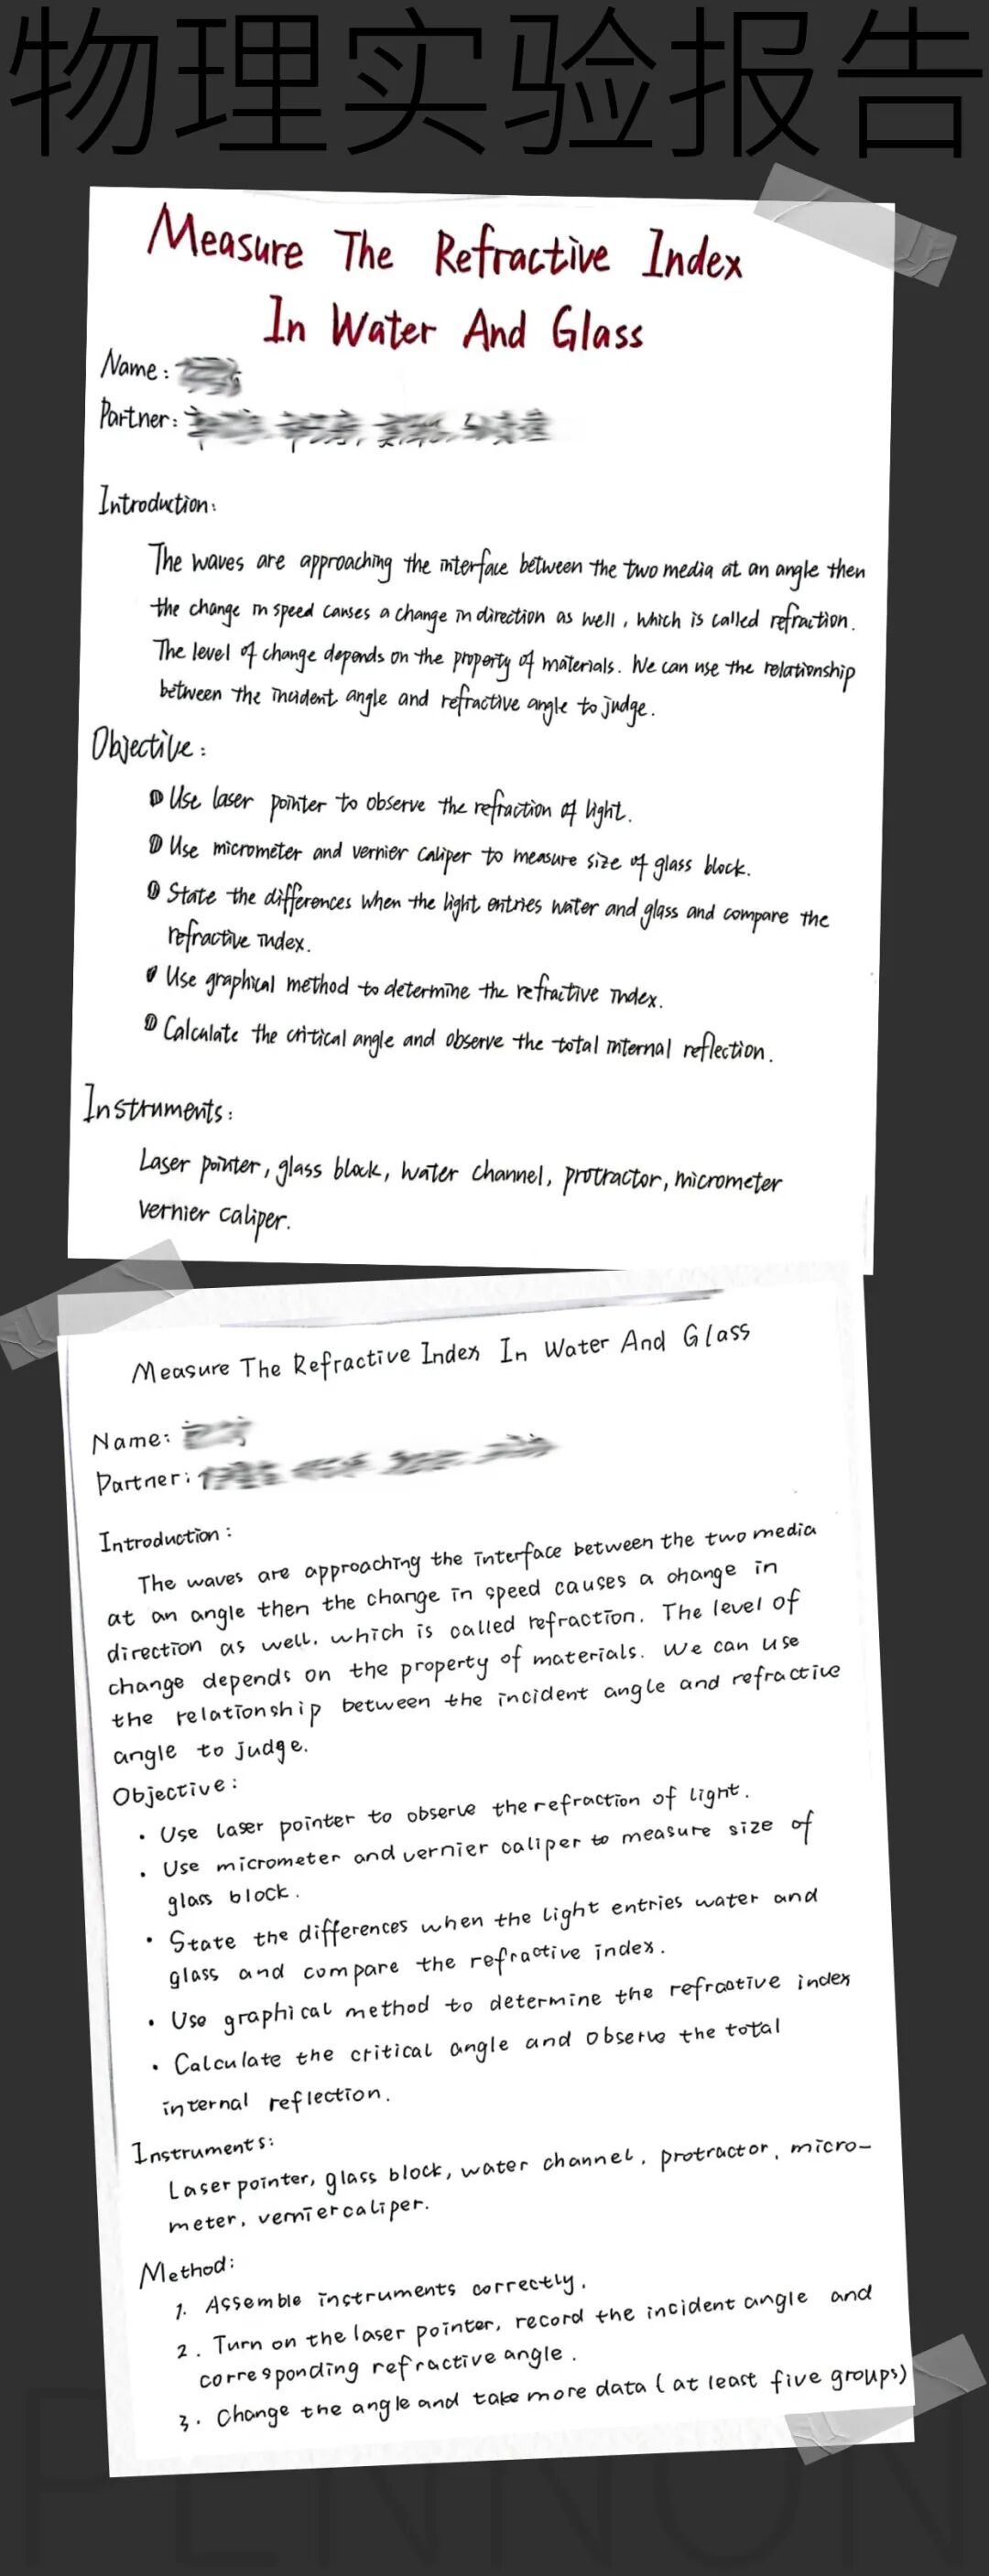 物理实验报告
Measure The Refractive Index
In Water And Glass
Name:
Partner:
Introduction:
The waves are approaching the interface between the two media at an angle then
the change in speed causes a change in direction as well, which is called refraction.
The level of change depends on the property of materials. We can use the relationship
between the incident angle and refractive angle to judge.
Objective:
Use laser pointer to observe the refraction of light.
Use micrometer and vernier caliper to measure size of glass block.
State the differences when the light entries water and glass and compare the
refractive index.
Use graphical method to determine the refractive index.
Calculate the critical angle and observe the total internal reflection.
Instruments:
Laser pointer, glass block, water channel, protractor, micrometer
vernier caliper.
Measure The Refractive Index In Water And Glass
Name:
Partner:
Introduction:
The waves are approaching the interface between the two media
at an angle then the change in speed causes a change in
direction as well. which is called refraction. The level of
change depends on the property of materials. We can use
the relationship between the incident angle and refractive
angle to judge.
Objective:
· Use laser pointer to observe the refraction of light.
· Use micrometer and vernier caliper to measure size of
glass block.
· State the differences when the light entries water and
glass and compare the refractive index.
· Use graphical method to determine the refractive index
· Calculate the critical angle and observe the total
internal reflection.
Instruments:
Laser pointer, glass block, water channel, protractor, micro-
meter, vernier caliper.
Method:
1. Assemble instruments correctly.
2. Turn on the laser pointer, record the incident angle and
corresponding refractive angle.
3. Change the angle and take more data (at least five groups)
PENNON